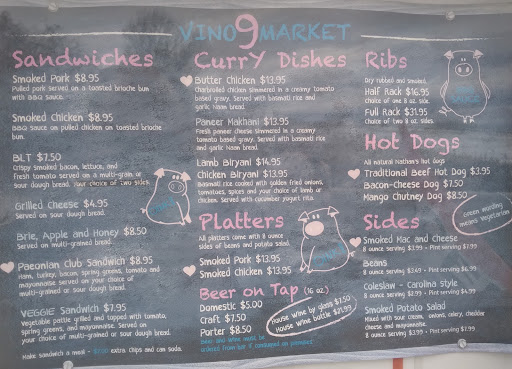 VINO 9 MARKET
Sandwiches
Smoked Pork $8.95
Pulled pork served on a toasted brioche bun
with BBQ sauce.
Smoked Chicken $8.95
BBQ sauce on pulled chicken on toasted brioche
bun.
BLT $7.50
Crispy smoked bacon, lettuce, and
fresh tomato served on a multi-grain or
sour dough bread. Your choice of two sides.
Grilled Cheese $4.95
Served on sour dough bread.
Brie, Apple and Honey $8.50
Served on multi-grained bread.
Paeonian Club Sandwich $8.95
Ham, turkey, bacon, spring greens, tomato and
mayonnaise served on your choice of
multi-grained or sour dough bread.
VEGGIE Sandwich $7.95
Vegetable pattie grilled and topped with tomato,
spring greens, and mayonnaise. Served on
your choice of multi-grain or sour dough bread.
Make sandwich a meal - extra chips and can soda.
Curry Dishes
Butter Chicken $13.95
Charbroiled chicken simmered in a creamy tomato
based gravy. Served with basmati rice and
garlic Naan bread.
Paneer Makhani $13.95
Fresh paneer cheese simmered in a creamy
tomato based gravy. Served with basmati rice
and garlic Naan bread.
Lamb Biryani $14.95
Chicken Biryani $13.95
Basmati rice cooked with golden fried onions,
tomatoes, spices and your choice of lamb or
chicken. Served with cucumber yogurt rita.
Platters
All platters come with 8 ounce
sides of beans and potato salad.
Smoked Pork $13.95
Smoked Chicken $13.95
Beer on Tap (16 oz.)
Domestic $5.00
Craft $7.50
Porter $8.50
Beer and wine must be
ordered from bar if consumed on premises
House Wine by glass $7.50
House Wine bottle $21.99
Ribs
Dry rubbed and smoked.
Half Rack $16.95
Choice of one 8 oz. side.
Full Rack $31.95
Choice of two 8 oz. sides.
Hot Dogs
All natural Nathan's hot dogs
Traditional Beef Hot Dog $3.95
Bacon-Cheese Dog $7.50
Mango Chutney Dog $8.50
Green wording
means vegetarian
Sides
Smoked Mac and Cheese
8 ounce serving $3.99 - Pint serving $6.99
Beans
8 ounce serving $2.49 - Pint serving $4.99
Coleslaw - Carolina style
8 ounce serving $3.99 - Pint serving $7.99
Smoked Potato Salad
Mixed with sour cream, onions, celery, cheddar
cheese and mayonnaise.
8 ounce serving $3.99 - Pint serving $7.99